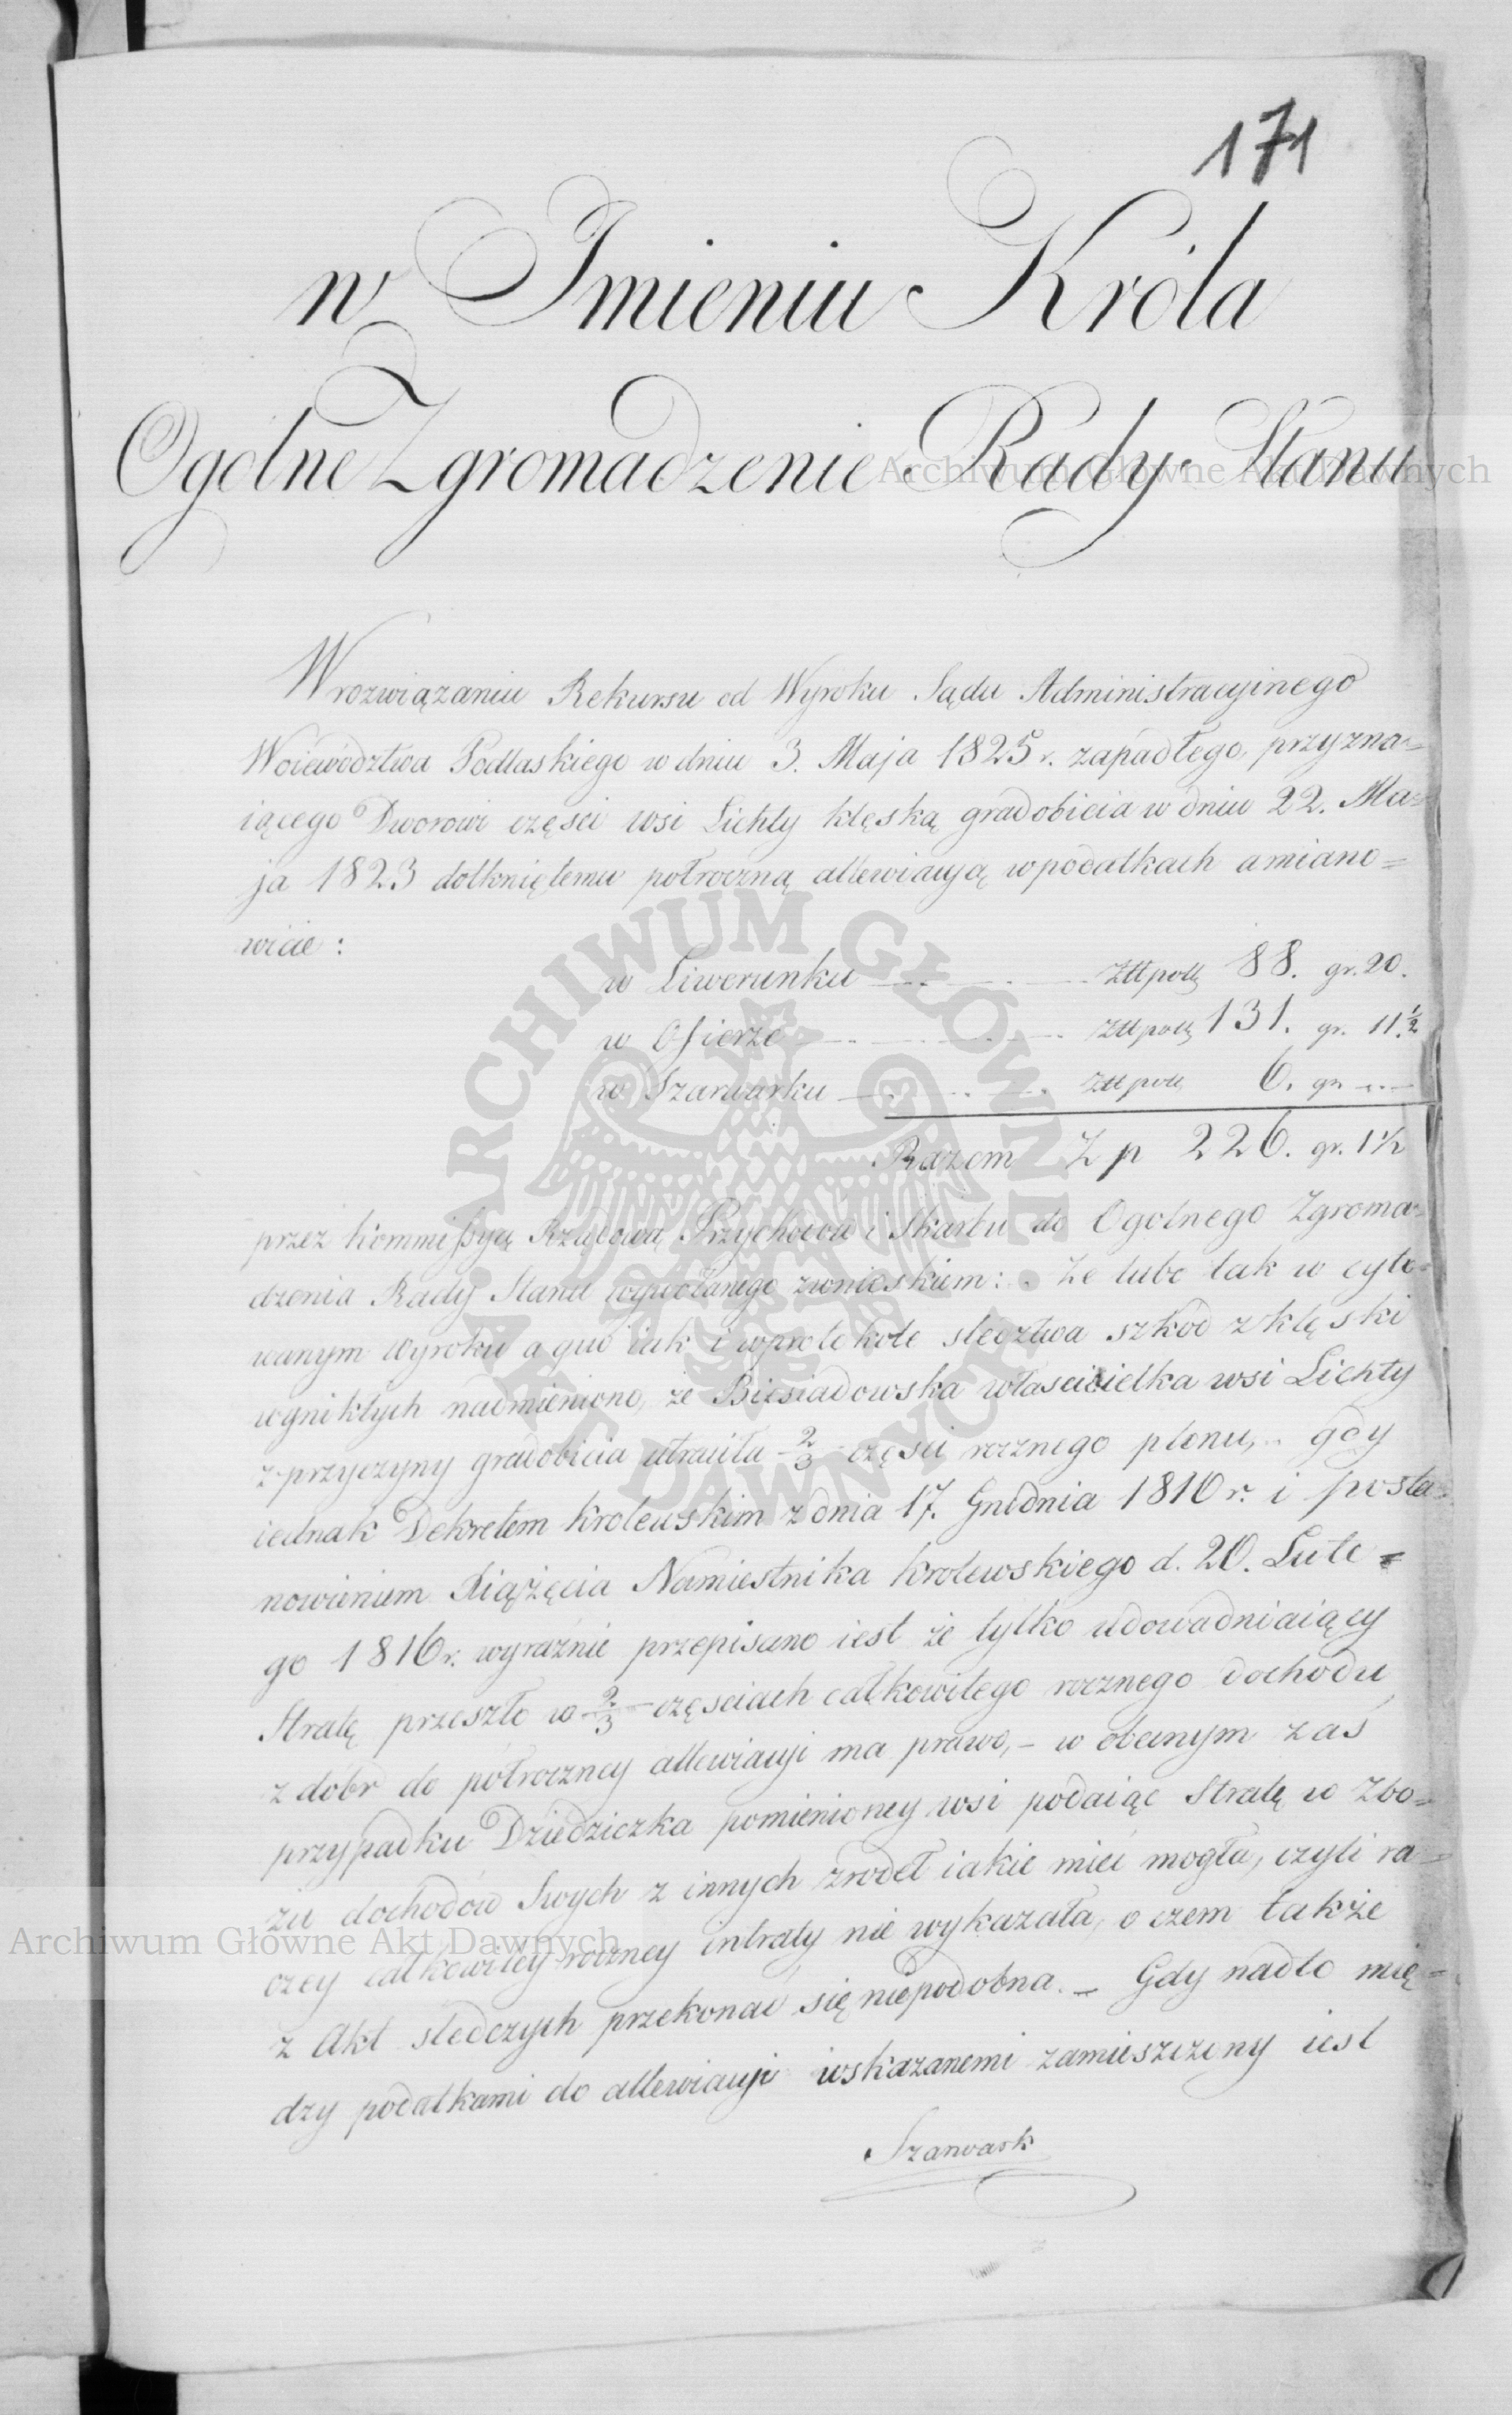 171
w Imieniu Króla
Ogolne Zgromadzenie Rady Stanu
W rozwiązaniu Rekursu od Wyroku Sądu Administracyinego
Woiewodztwa Podlaskiego w dniu 3. Maja 1825 r. zapadłego, przyzna=
iącego Dworowi częsci wsi Lichty klęską gradobicia w dniu 22. Ma=
ja 1823 dotkniętemu połroczną allewiacyją w podatkach a miano=
wicie:
w Liwerunku Złł polls 88. gr. 20.
w Ofierze Złł polls 131. gr. 11. ½
w Szarwarku Złł polls 6. gr. —
Razem Z p 226. gr. 1½
przez Kommissyą Rządową Przychodów i Skarbu do Ogolnego Zgroma=
dzenia Rady Stanu wywołanego z wnioskiem: Że lubo tak w cyto=
wanym Wyroku a quo iak i w protokole sledztwa szkod z klęski
wyniktych nadmieniono, że Biesiadowska włascicielka wsi Lichty
z przyczyny gradobicia utraciła 2/3 częsci rocznego plonu, gdy
iednak Dekretem Krolewskim z dnia 17. Grudnia 1816 r. i posta=
nowieniem Xiążęcia Namiestnika Krolewskiego d. 20. Lute=
go 1816 r. wyraźnie przepisano iest że tylko udowadniaiący
Stratę przeszło w 2/3 częsciach całkowitego rocznego dochodu
z dóbr do połroczney allewiacyi ma prawo, – w obecnym zaś
przypadku Dziedziczka pomienioney wsi podaiąc Stratę w Zbo=
żu dochodów Swych z innych zrodeł iakie mieć mogła, czyli ra=
czey całkowitey roczney intraty nie wykazała, o czem także
z Akt sledczych przekonać się niepodobna. – Gdy nadto mię=
dzy podatkami do allewiacyi wskazanemi zamieszczony iest
Szarwark
Archiwum Główne Akt Dawnych
Archiwum Główne Akt Dawnych
ARCHIWUM GŁÓWNE AKT DAWNYCH